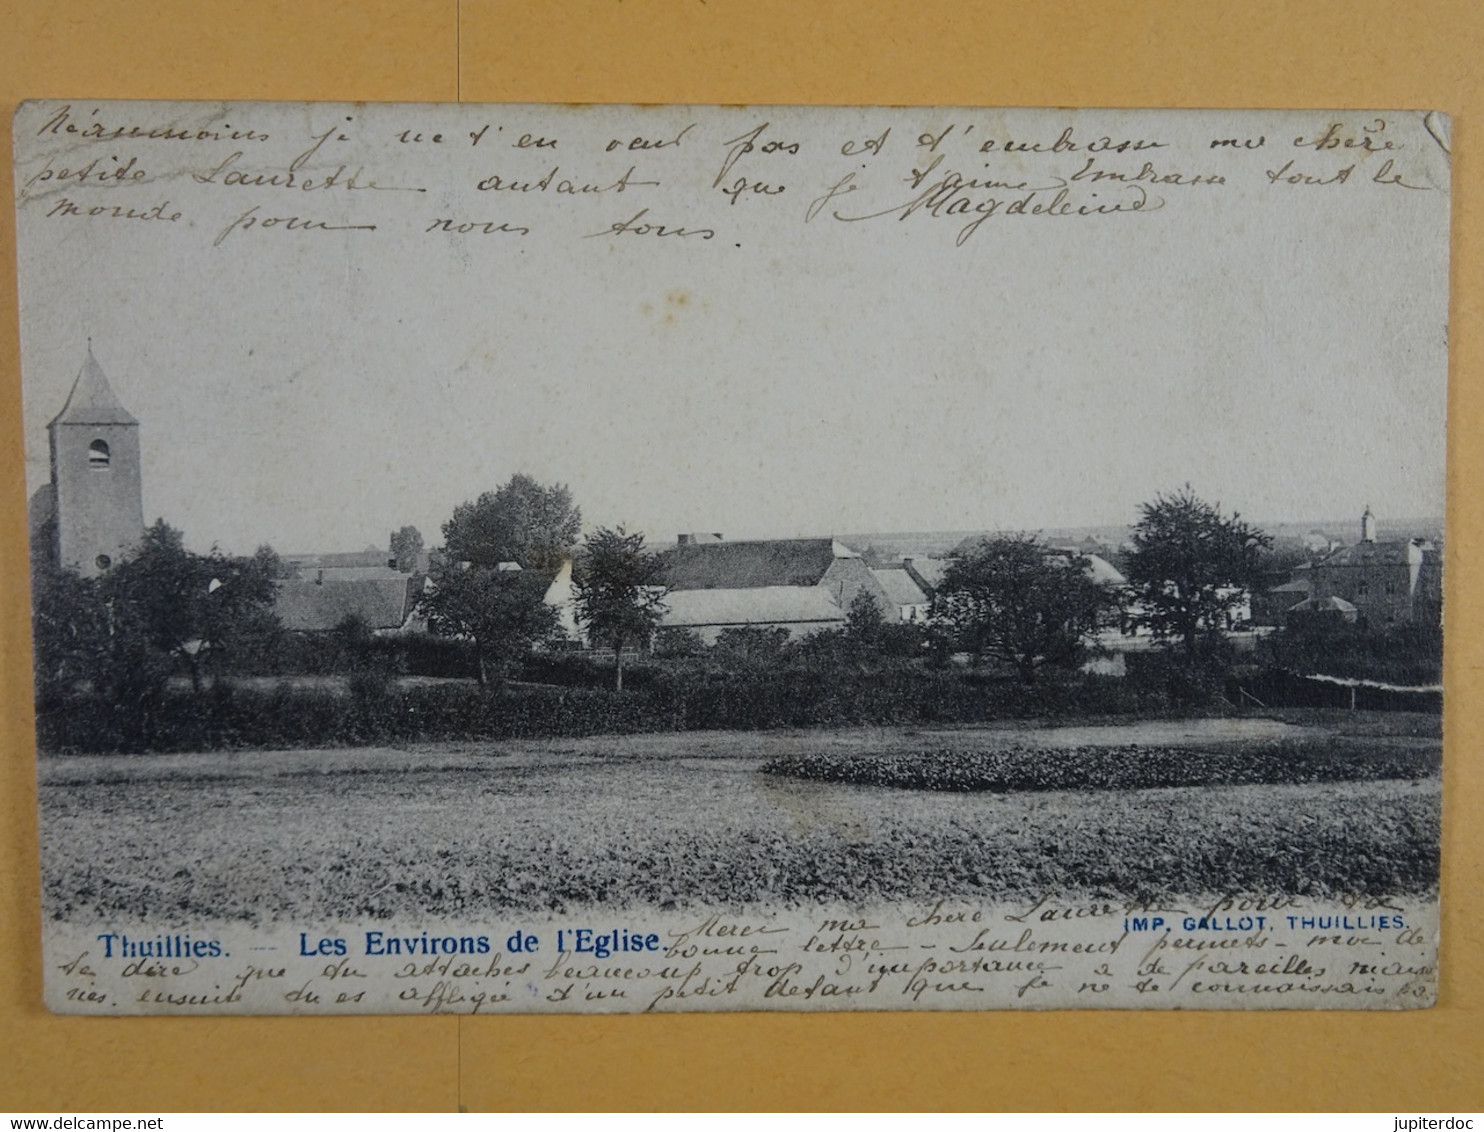 Néanmoins je ne t'en veux pas et t'embrasse ma chère
petite Laurette autant que je t'aime Embrasse tout le
monde pour nous tous. Magdeleine
Merci ma chère Laurette pour ta
IMP. GALLOT, THUILLIES.
Thuillies. — Les Environs de l'Eglise.
bonne lettre - Seulement permets-moi de
te dire que tu attaches beaucoup trop d'importance a de pareilles niaise
ries. ensuite tu es affligée d'un petit défaut que je ne te connaissais pas
delcampe.net
jupiterdoc